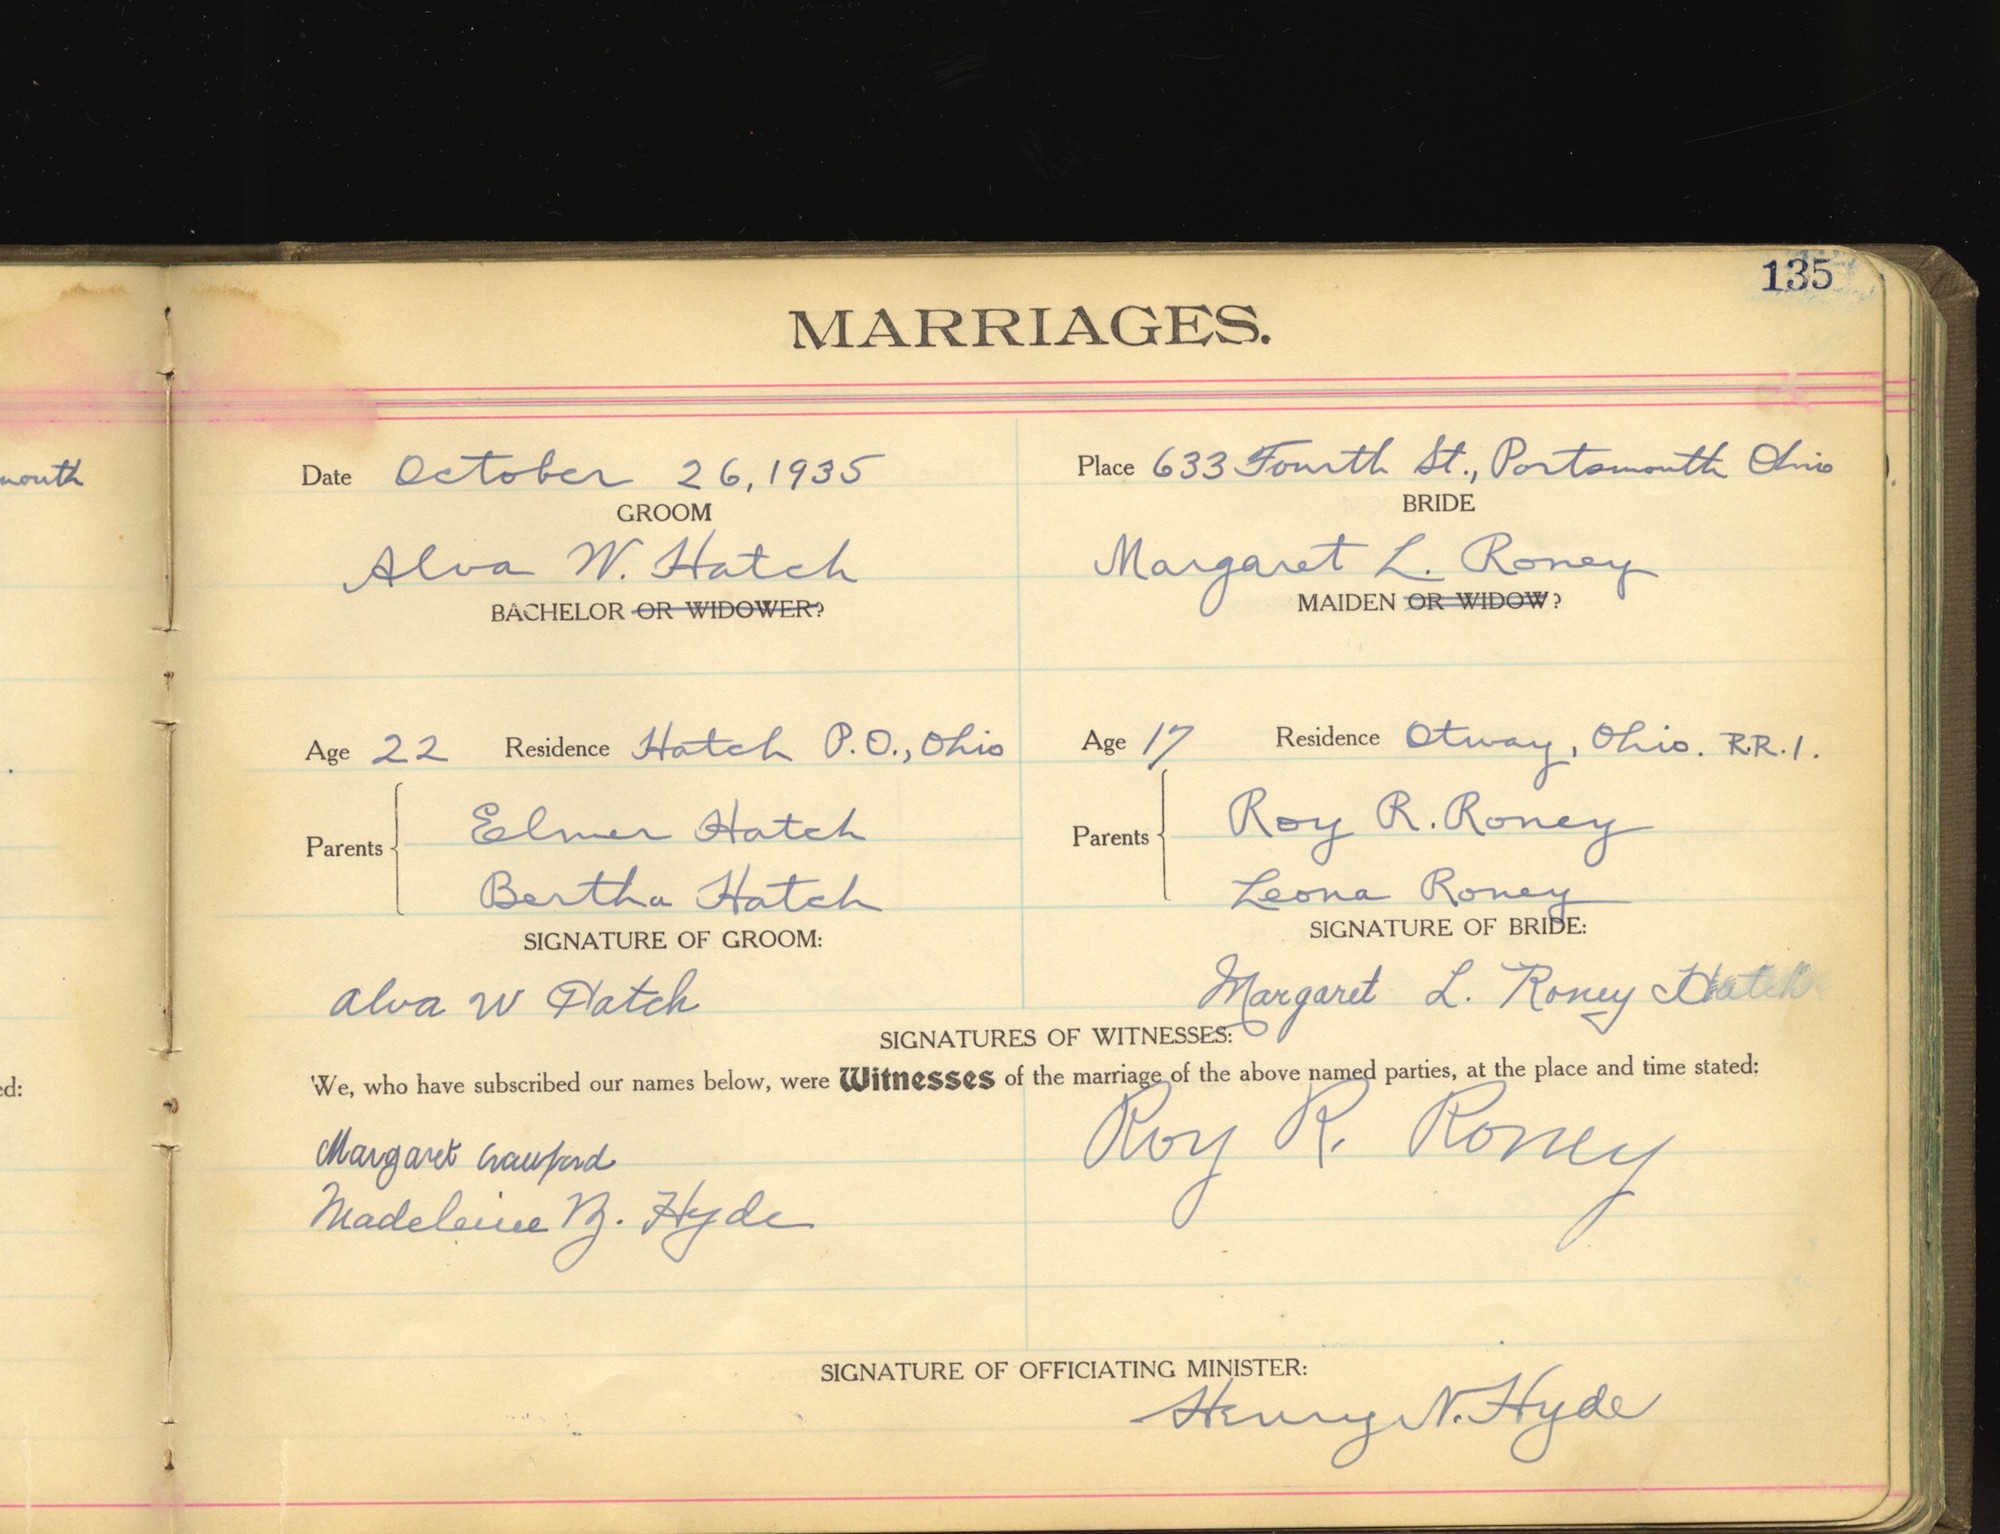 135
MARRIAGES.
mouth
Date October 26, 1935
Place 633 Fourth St., Portsmouth Ohio
GROOM
BRIDE
Alva W. Hatch
Margaret L. Roney
BACHELOR OR WIDOWER?
MAIDEN OR WIDOW?
Age 22 Residence Hatch P.O., Ohio
Age 17 Residence Otway, Ohio. R.R.1.
Parents
Elmer Hatch
Bertha Hatch
Parents
Roy R. Roney
Leona Roney
SIGNATURE OF GROOM:
SIGNATURE OF BRIDE:
Alva W Hatch
Margaret L. Roney Hatch
SIGNATURES OF WITNESSES:
ed:
We, who have subscribed our names below, were Witnesses of the marriage of the above named parties, at the place and time stated:
Margaret Crawford
Madeleine B. Hyde
Roy R. Roney
SIGNATURE OF OFFICIATING MINISTER:
Henry N. Hyde